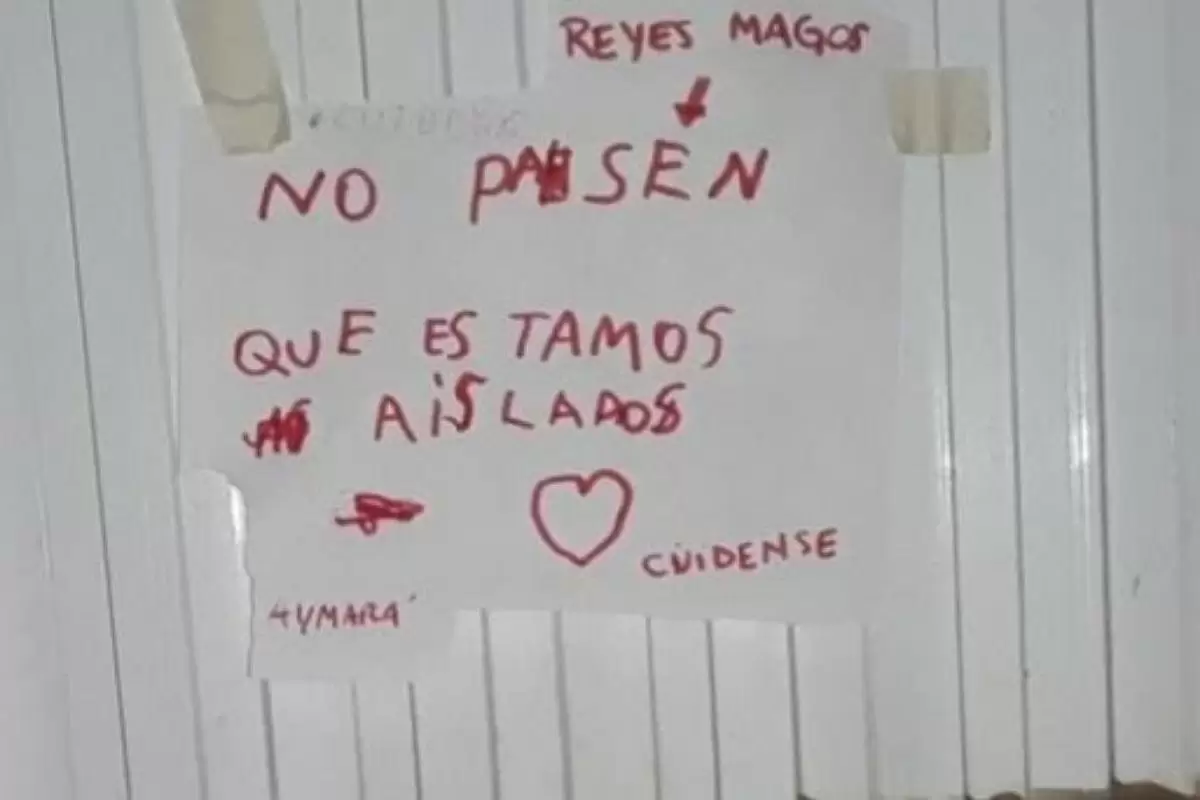 REYES MAGOS
NO PASEN
QUE ESTAMOS
AiSLADOS
CUiDENSE
AYMARA